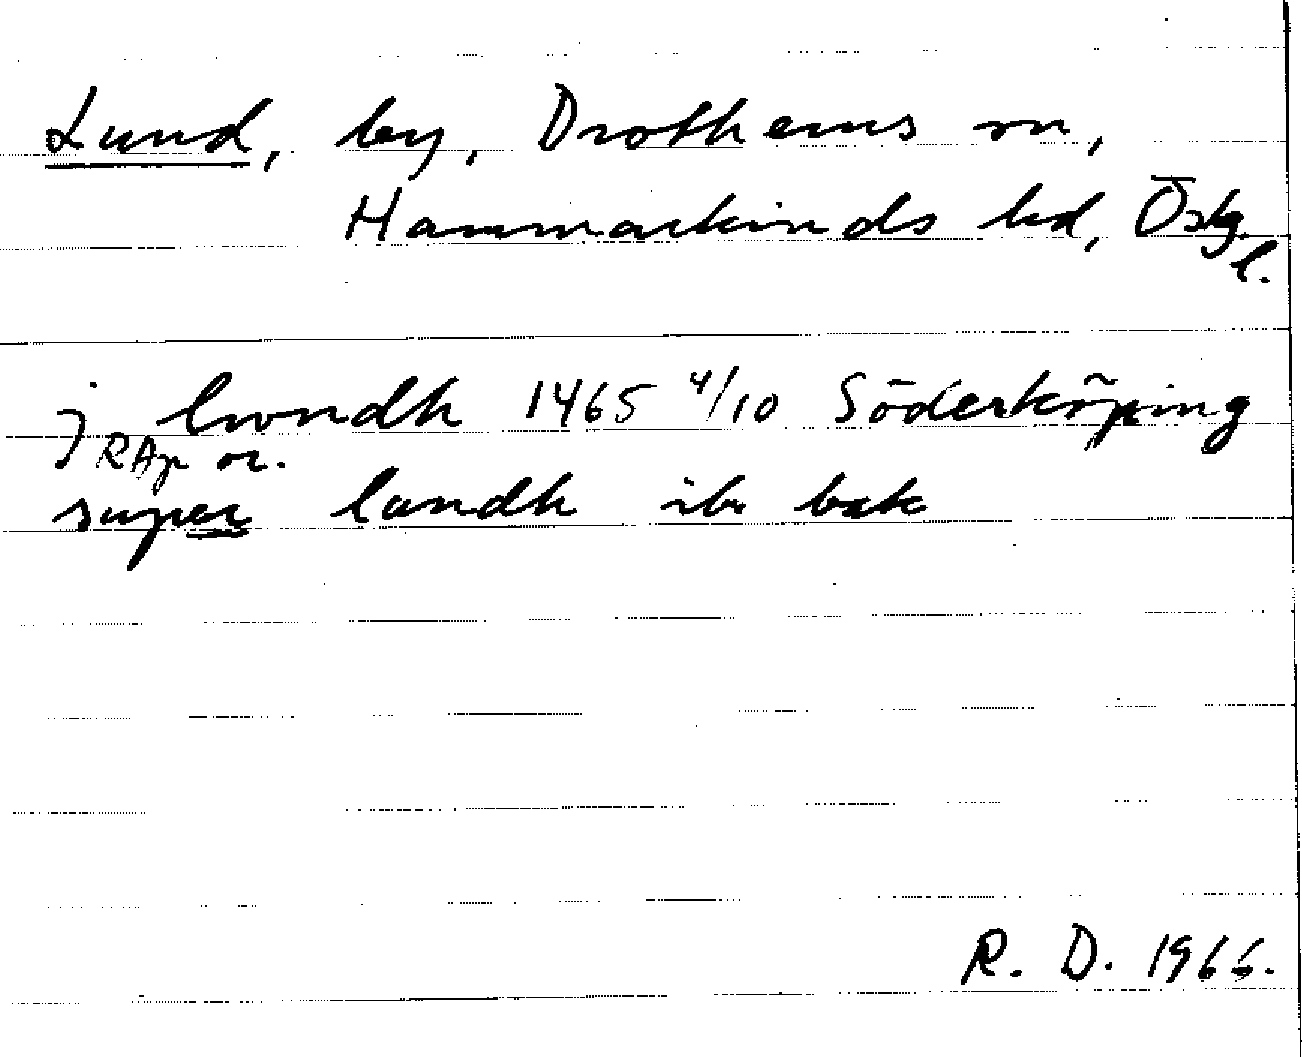 Lund, by, Drothems sn,
Hammarkinds hd, Östg.
l.
j lwndh 1465 4/10 Söderköping
RAp or.
super lundh ib bak
R. D. 1966.